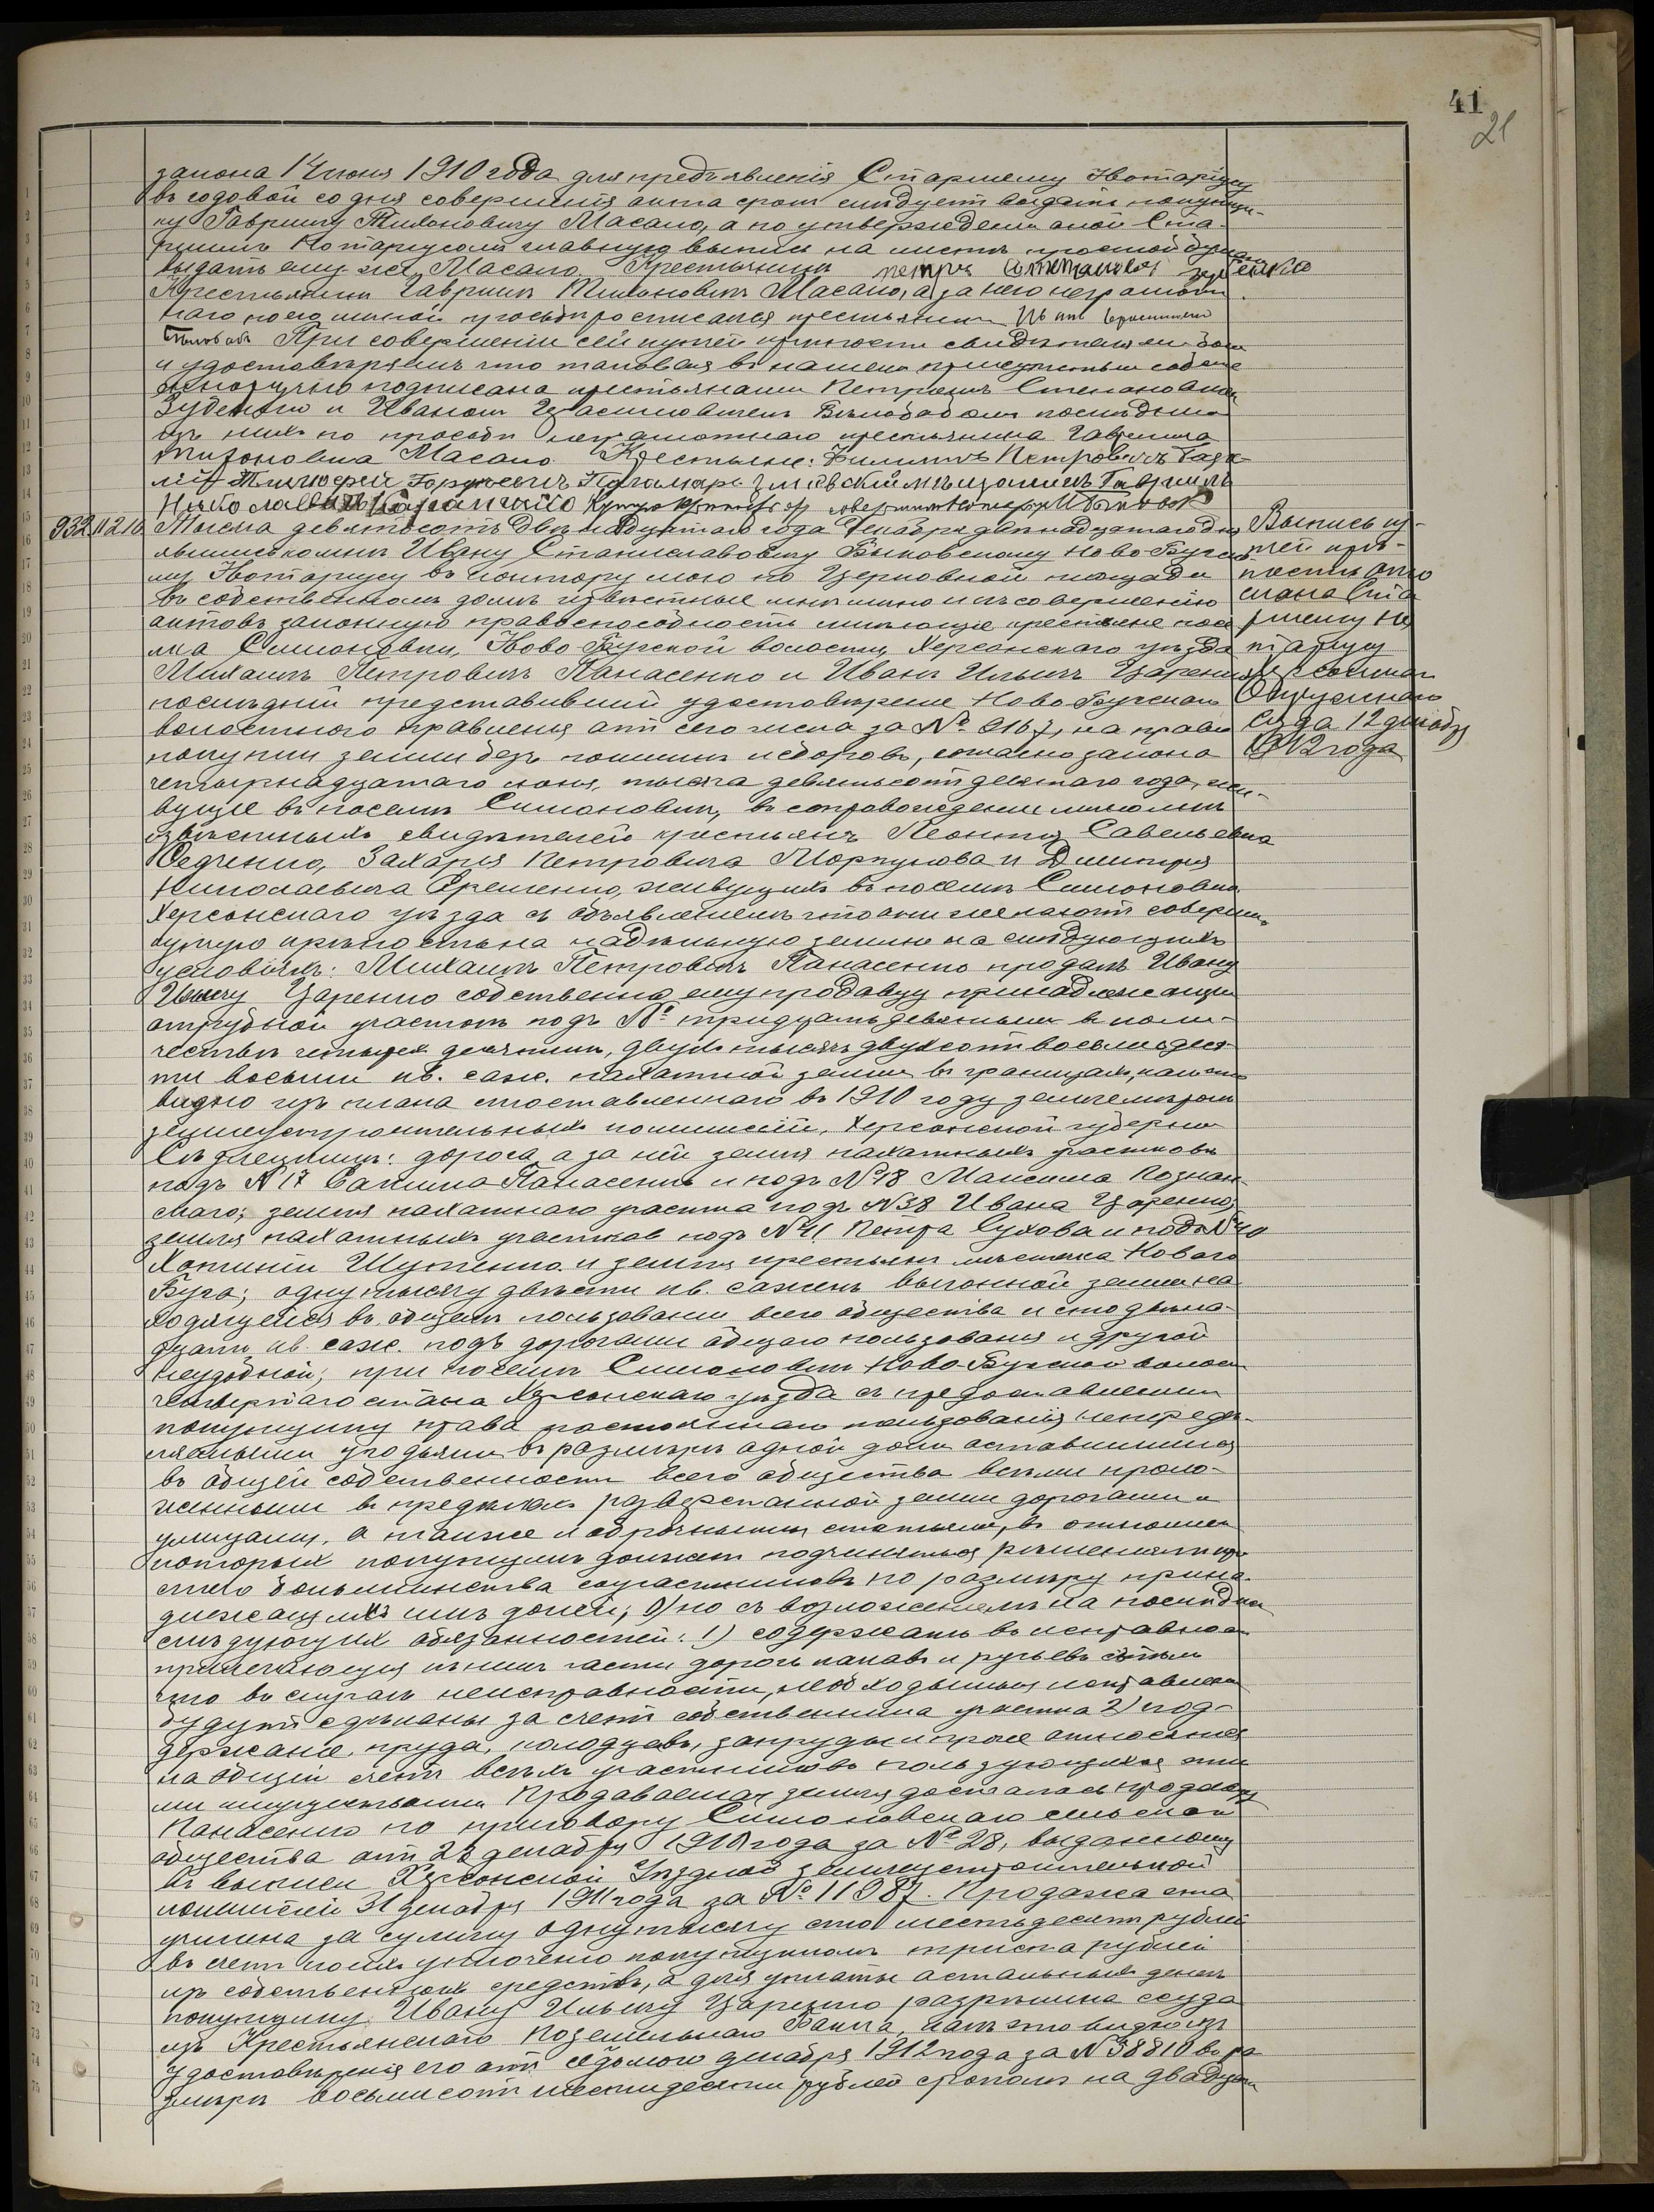 41
21
закона 14 июня 1910 года для предъявленія Старшему Нотаріусу
въ годовой со дня совершенія акта срокъ слѣдуетъ выдать покупщи-
ку Гавріилу Тихоновичу Масало, а по утвержденіи оной Ста-
ршимъ Нотаріусомъ главную выпись на листѣ простой бумаги
выдать ему же Масало. Крестьянинъ Петръ Степановъ
Крестьянинъ Гавріилъ Тихоновичъ Масало, а за него неграмот-
наго по его личной просьбѣ росписался крестьянинъ Иванъ
При совершеніи сей купчей крѣпости свидѣтелями были
и удостовѣряемъ что таковая въ нашемъ присутствіи собст-
венноручно подписана крестьянами Петромъ Степановичемъ
и Иваномъ Герасимовичемъ Бѣлобабомъ послѣднимъ
изъ нихъ по просьбѣ неграмотнаго крестьянина Гавріила
Тихоновича Масало. Крестьяне: Филиппъ Петровичъ
932 11 210 Тысяча девятьсотъ двѣнадцатаго года Декабря двѣнадцатаго дня
явились ко мнѣ Ивану Станиславовичу Быковскому Ново-Бугско-
му Нотаріусу въ контору мою по Церковной площади
въ собственномъ домѣ извѣстные мнѣ лично и къ совершенію
актовъ законную правоспособность имѣющіе крестьяне посел-
ка Симоновки, Ново-Бугской волости, Херсонскаго уѣзда
Михаилъ Петровичъ Панасенко и Иванъ Ильичъ Царенко
послѣдній представившій удостовѣреніе Ново-Бугскаго
волостного правленія отъ сего числа за № 9167, на право
покупки земли безъ пошлинъ и сборовъ, согласно закона
четырнадцатаго іюня, тысяча девятьсотъ десятаго года, жи-
вущіе въ поселкѣ Симоновкѣ, въ сопровожденіи лично мнѣ
извѣстныхъ свидѣтелей крестьянъ Леонтія Савельевича
Седченко, Захарія Петровича Моркунова и Димитрія
Николаевича Еременко, живущихъ въ поселкѣ Симоновкѣ
Херсонскаго уѣзда съ объявленіемъ что они желаютъ совершить
купчую крѣпость на надѣльную землю на слѣдующихъ
условіяхъ: Михаилъ Петровичъ Панасенко продалъ Ивану
Ильичу Царенко собственно ему продавцу принадлежащій
отрубной участокъ подъ № тридцать девятымъ въ коли-
чествѣ четырехъ десятинъ, двухъ тысячъ двухсотъ восьмидеся-
ти восьми кв. саж. пахатной земли въ границахъ, какъ это
видно изъ плана составленнаго въ 1910 году землемѣромъ
землеустроительныхъ коммиссій, Херсонской губерніи
дорога, а за ней земля пахатныхъ участковъ
подъ № 17 Панасенко и подъ № 18 Максима Познан-
скаго; земля пахатнаго участка подъ № 38 Ивана Царенко;
земля пахатныхъ участковъ подъ № 41 Петра Сухова и подъ № 40
и земля крестьянъ мѣстечка Новаго
Буга; одну тысячу двѣсти кв. сажень выгонной земли на-
ходящейся въ общемъ пользованіи всего общества и сто двѣна-
дцать кв. саж. подъ дорогами общаго пользованія и другой
неудобной, при поселкѣ Симоновкѣ Ново-Бугской волости
четвертаго стана Херсонскаго уѣзда съ предоставленіемъ
покупщику права постояннаго пользованія непредѣ-
льными угодьями въ размѣрѣ одной доли оставшимися
въ общей собственности всего общества всѣми проло-
женными въ предѣлахъ разверстанной земли дорогами и
улицами, а также и оброчными статьями, въ отношеніи
которыхъ покупщикъ долженъ подчиняться рѣшеніямъ про-
стого большинства соучастниковъ по размѣру прина-
длежащихъ имъ долей; но съ возложеніемъ на послѣдняго
слѣдующихъ обязанностей: 1) содержать въ исправности
прилегающія къ нимъ части дорогъ канавъ и ручьевъ съ тѣмъ
что въ случаѣ неисправности, необходимыя исправленія
будутъ сдѣланы за счетъ собственника участка 2) под-
держаніе пруда, колодцевъ, запруды и проч. относятся
на общій счетъ всѣхъ участниковъ пользующихся эти-
ми имуществами. Продаваемая земля досталась продавцу
Панасенко по приговору Симоновскаго сельскаго
общества отъ 22 декабря 1910 года за № 28, выданному
въ выписи Херсонской Уѣздной землеустроительной
коммиссіей 31 декабря 1911 года за № 11987. Продажа эта
учинена за сумму одну тысячу сто шестьдесятъ рублей
въ счетъ коихъ уплочено покупщикомъ триста рублей
изъ собственныхъ средствъ, а для уплаты остальныхъ денегъ
покупщику Ивану Ильичу Царенко разрѣшена ссуда
изъ Крестьянскаго Поземельнаго Банка, какъ это видно изъ
удостовѣренія его отъ седьмого декабря 1912 года за № 38810 въ ра-
змѣрѣ восьмисотъ шестидесяти рублей срокомъ на двадцать
Выпись куп-
чей крѣ-
пости ото-
слана Ста-
ршему Но-
таріусу
Херсонскаго
Окружнаго
Суда 12 декабря
1912 года